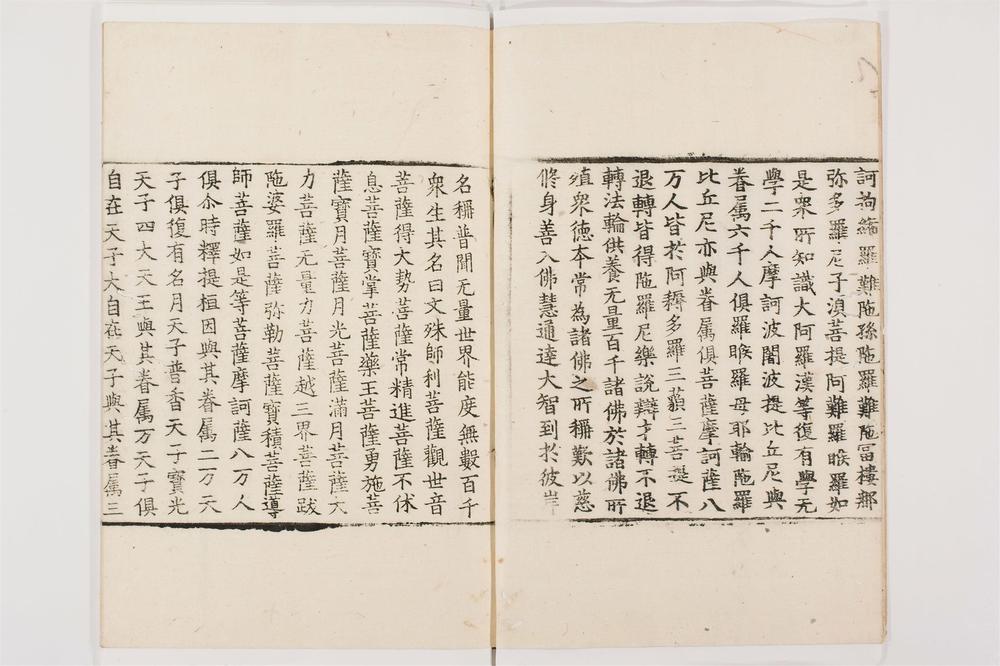 訶拘絺羅難陁孫陁羅難陁冨樓那
弥多羅尼子湏菩提阿難羅睺羅如
是衆所知識大阿羅漢等復有學无
學二千人摩訶波闍波提比丘尼與
眷属六千人俱羅睺羅母耶輸陁羅
比丘尼亦與眷属俱菩薩摩訶薩八
万人皆扵阿耨多羅三藐三菩提不
退轉皆得陁羅尼樂說辯才轉不退
轉法輪供養无量百千諸佛於諸佛所
殖衆德本常為諸佛之所稱歎以慈
修身善入佛慧通達大智到扵彼岸
名稱普聞无量世界能度無數百千
衆生其名曰文殊師利菩薩觀世音
菩薩得大勢菩薩常精進菩薩不休
息菩薩寶掌菩薩藥王菩薩勇施菩
薩寶月菩薩月光菩薩滿月菩薩大
力菩薩无量力菩薩越三界菩薩跋
陁婆羅菩薩弥勒菩薩寶積菩薩導
師菩薩如是等菩薩摩訶薩八万人
俱尒時釋提桓因與其眷属二万天
子俱復有名月天子普香天子寶光
天子四大天王與其眷属万天子俱
自在天子大自在天子與其眷属三